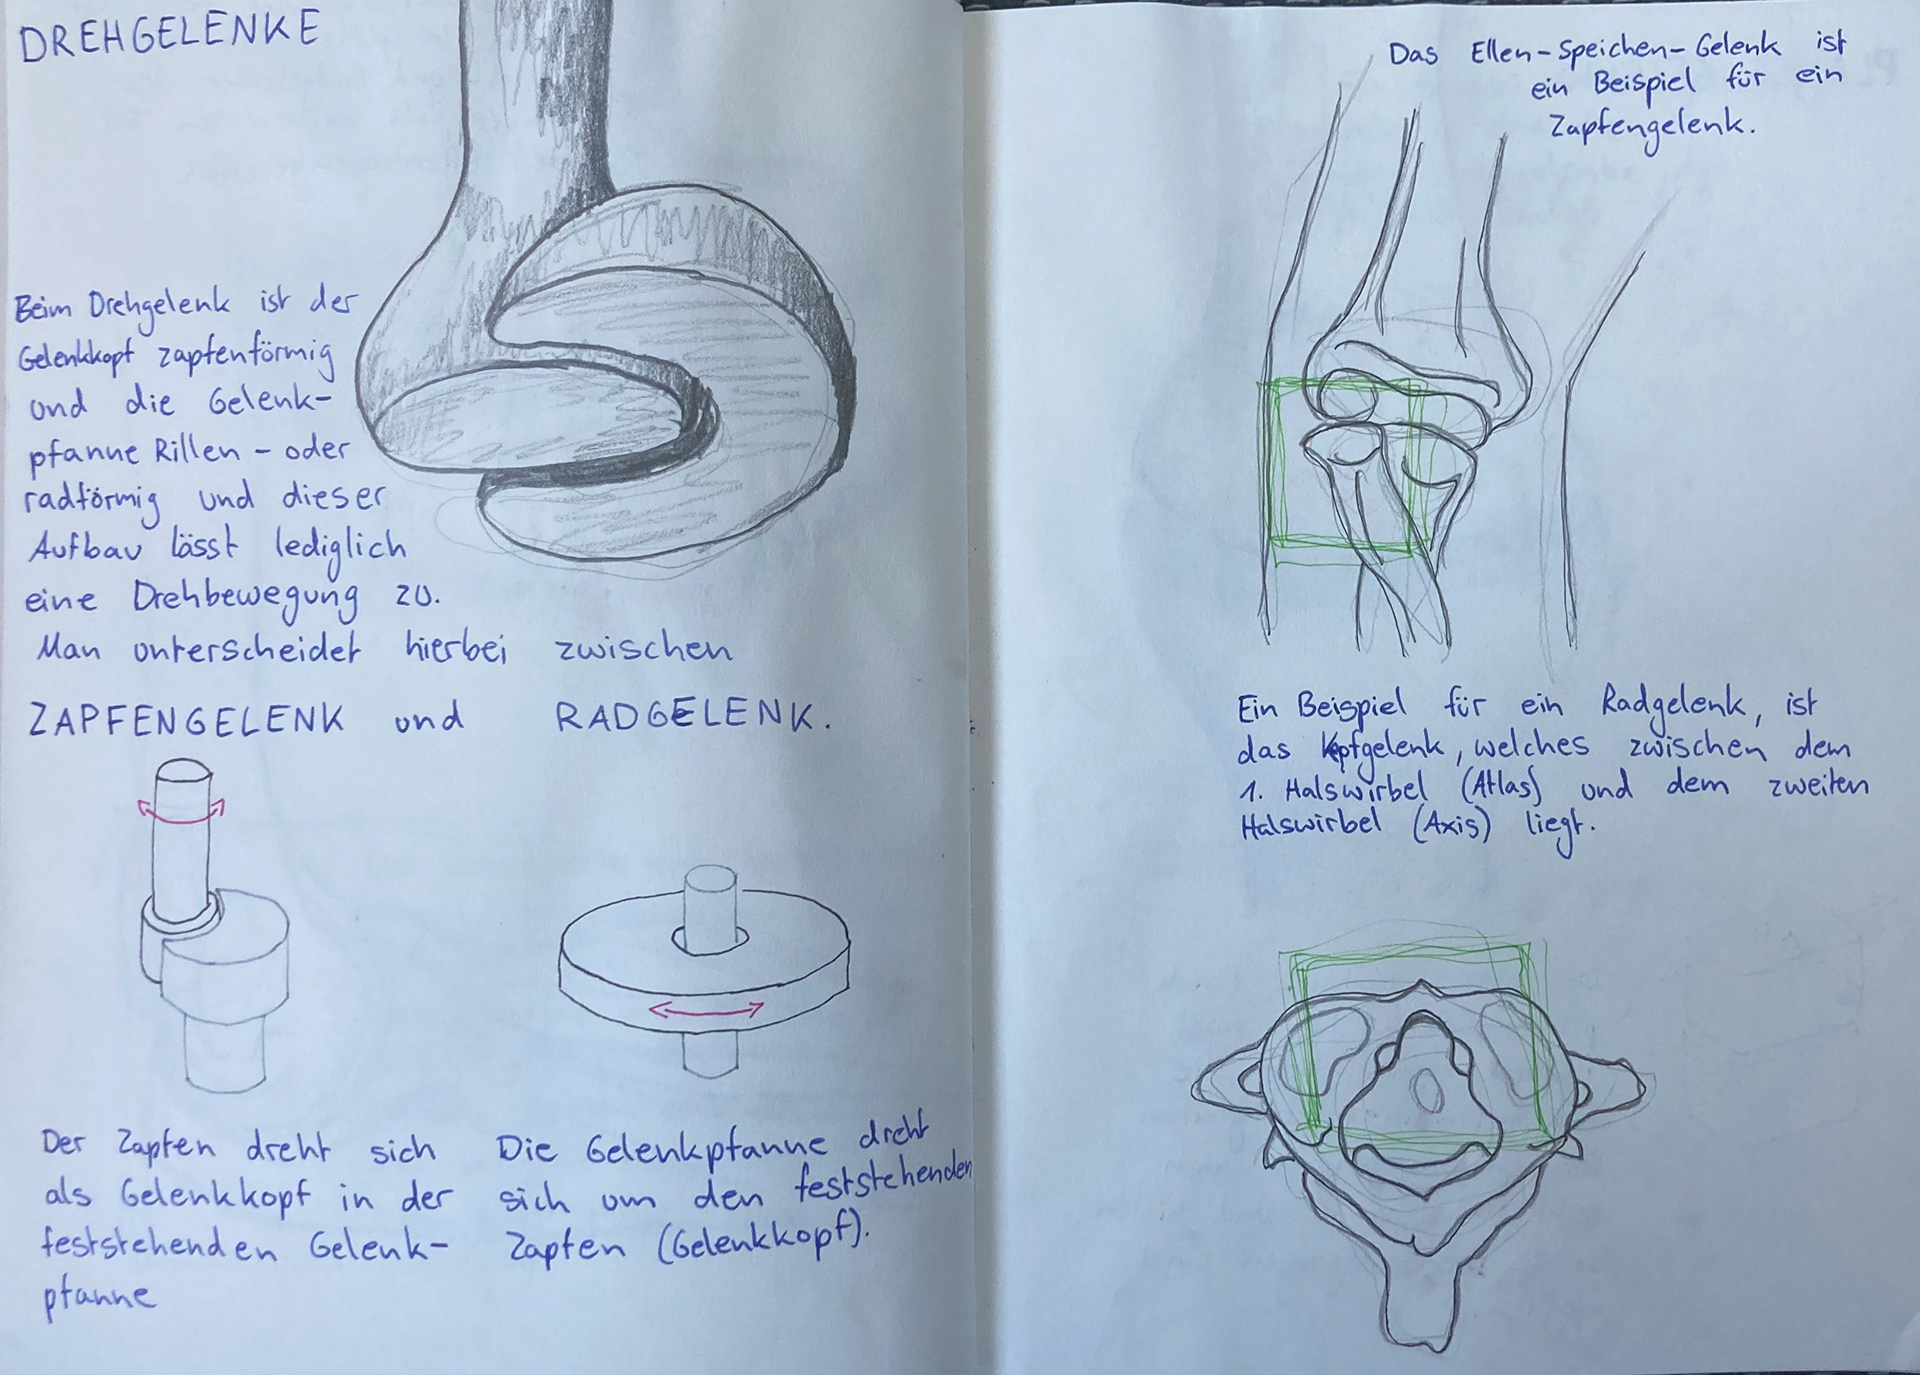 DREHGELENKE
Beim Drehgelenk ist der
Gelenkkopf zapfenförmig
und die Gelenk-
pfanne Rillen- oder
radförmig und dieser
Aufbau lässt lediglich
eine Drehbewegung zu.
Man unterscheidet hierbei zwischen
ZAPFENGELENK und RADGELENK.
Der Zapfen dreht sich
als Gelenkkopf in der
feststehenden Gelenk-
pfanne
Die Gelenkpfanne dreht
sich um den feststehenden
Zapfen (Gelenkkopf).
Das Ellen-Speichen-Gelenk ist
ein Beispiel für ein
Zapfengelenk.
Ein Beispiel für ein Radgelenk, ist
das Kopfgelenk, welches zwischen dem
1. Halswirbel (Atlas) und dem zweiten
Halswirbel (Axis) liegt.